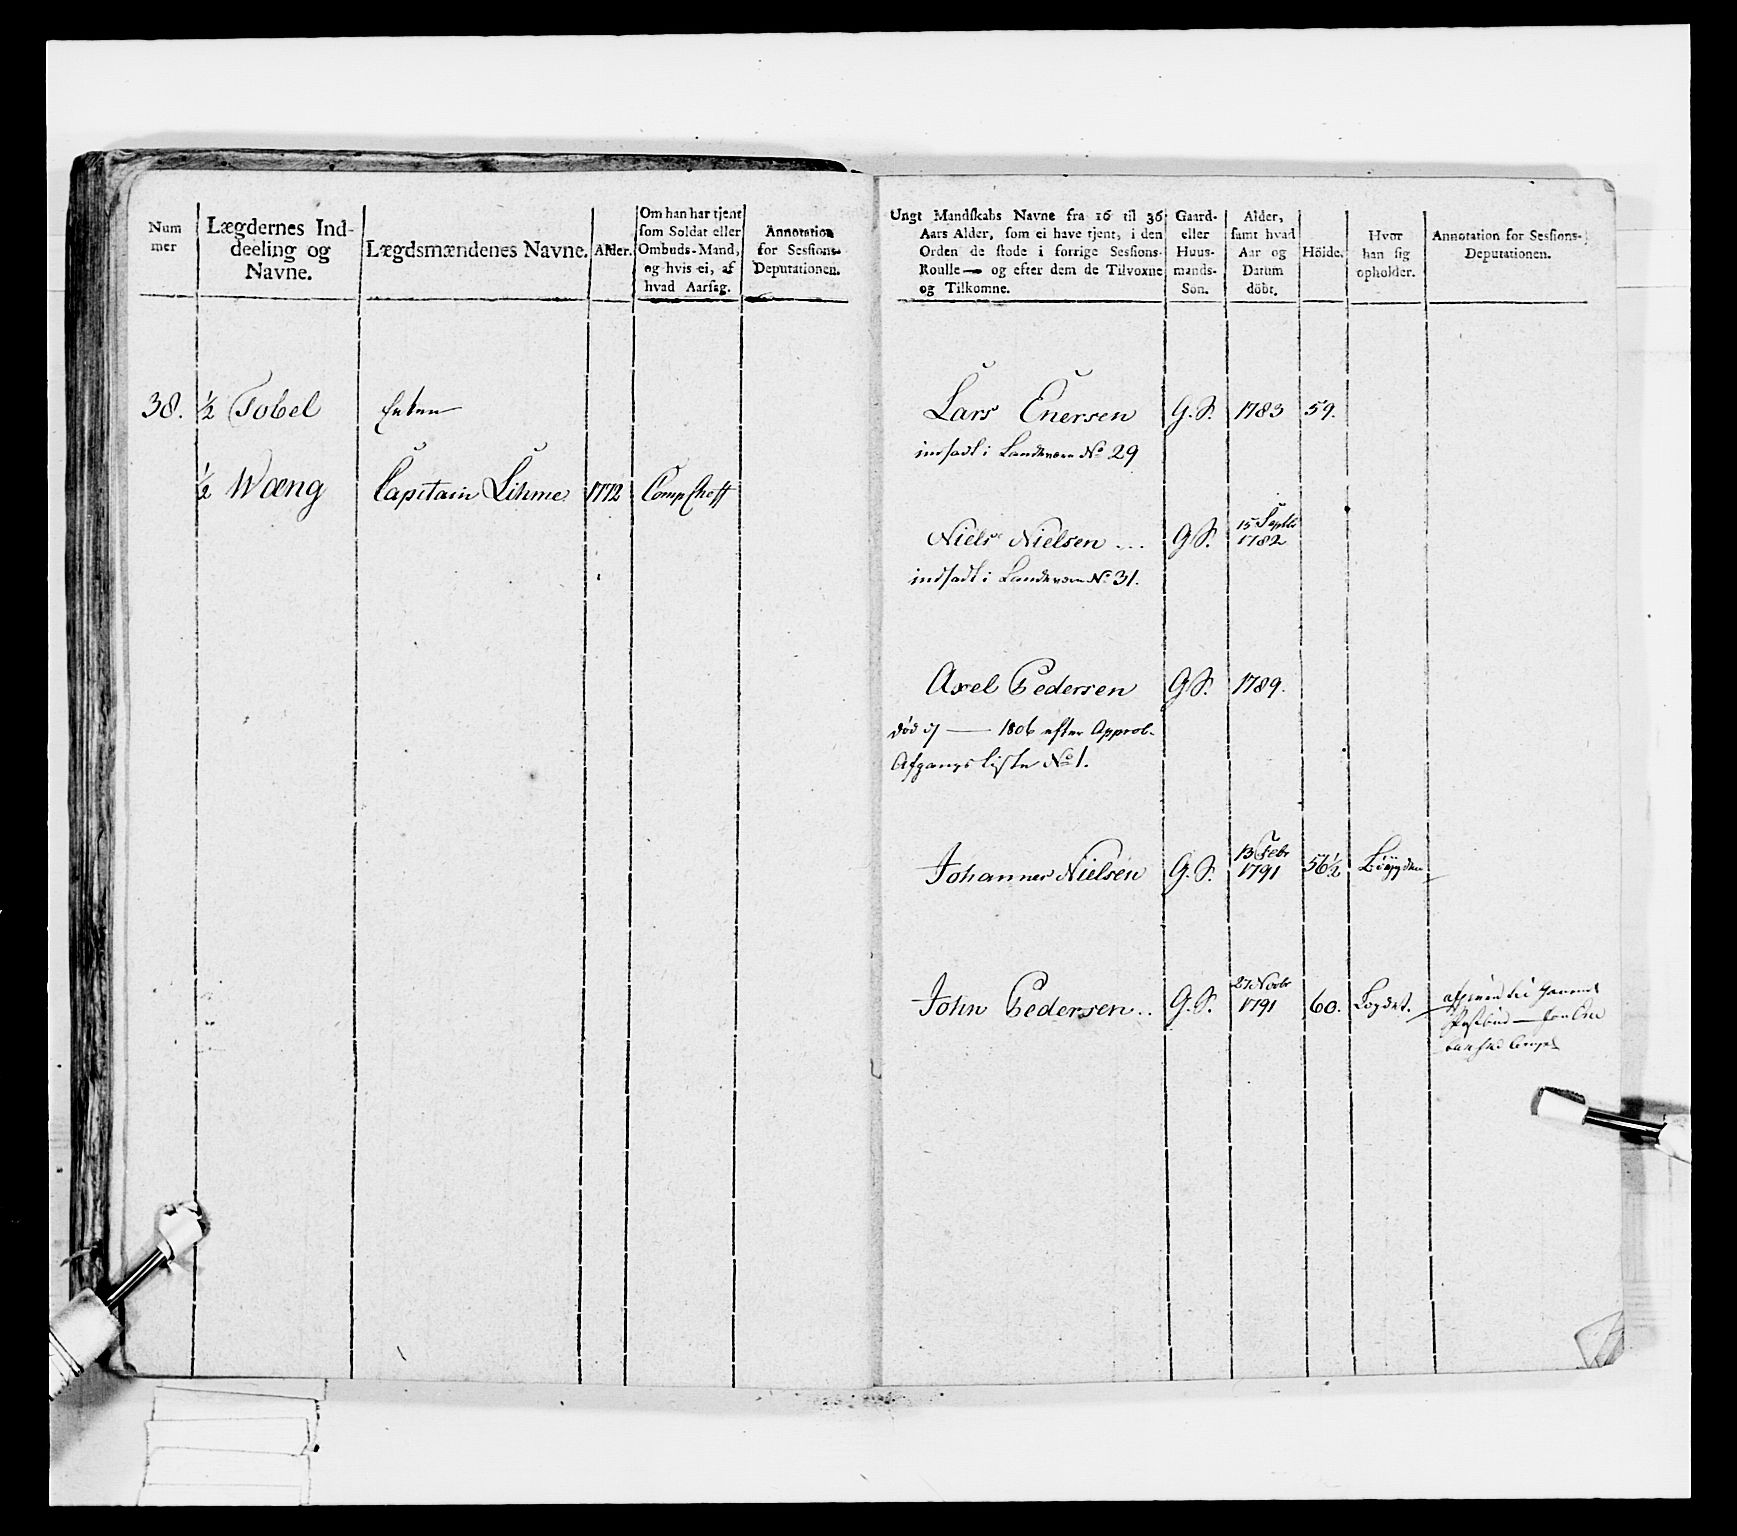 Num
mer
Lægdernes Ind-
deeling og
Navne.
Lægdsmændenes Navne.
Alder.
Om han har tjent
som Soldat eller
Ombuds-Mand,
og hvis ei, af
hvad Aarsag.
Annotation
for Sessions-
Deputationen.
38. ½ Tobel
Enken
½ Wæng Capitain Lihme 1772 Comp Cheff
Ungt Mandskabs Navne fra 16 til 36
Aars Alder, som ei have tjent, i den
Orden de stode i forrige Sessions-
Roulle — og efter dem de Tilvoxne
og Tilkomne.
Gaard-
eller
Huus-
mands-
Søn.
Alder,
samt hvad
Aar og
Datum
döbt.
Höide.
Hvor
han sig
opholder.
Annotation for Sessions-
Deputationen.
Lars Enersen G. S. 1783 59.
indsadt i Landeværn No 29
15 Septbr
Niels Nielsen ... G S. 1782
indsadt i Landeværn No 31.
Axel Pedersen G S. 1789.
død d — 1806 efter Approb.
Afgangs liste No 1.
13 Febr
Johannes Nielsen G. S. 1791 56½ Böygden
27 Novbr
John Pedersen .. G. S. 1791 60. Logdet.